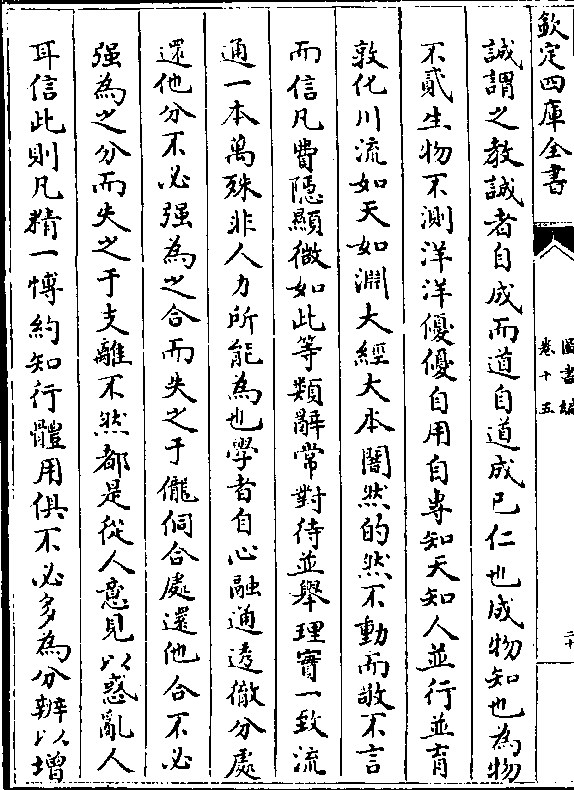 欽定四庫全書
圖書編
卷十五
二十
誠謂之教誠者自成而道自道成已仁也成物知也為物
不貳生物不測洋洋優優自用自専知天知人並行並育
敦化川流如天如淵大經大本闇然的然不動而敬不言
而信凡費隱顯微如此等類辭常對待並舉理實一致流
通一本萬殊非人力所能為也學者自心融通透徹分處
還他分不必强為之合而失之于儱侗合處還他合不必
强為之分而失之于支離不然都是從人意見以惑亂人
耳信此則凡精一博約知行體用俱不必多為分辨以增